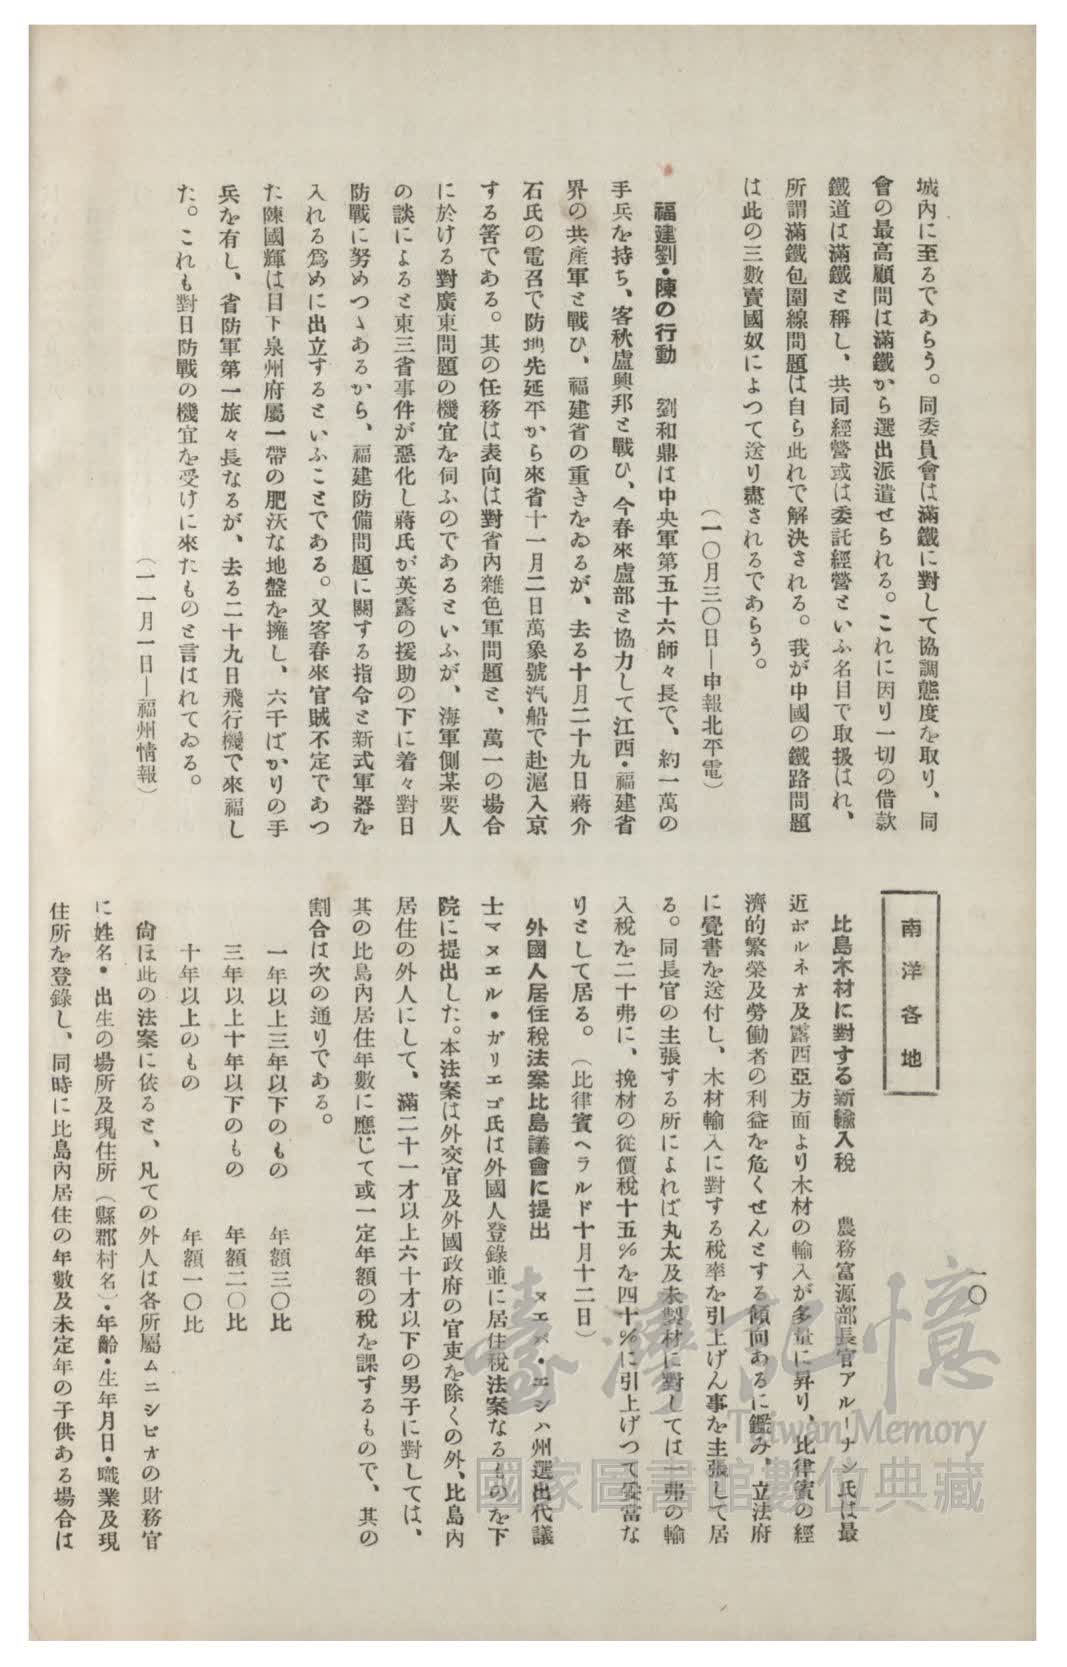 城內に至るであらう。同委員會は滿鐵に對して協調態度を取り、同
會の最高顧問は滿鐵から選出派遣せられる。これに因り一切の借款
鐵道は滿鐵と稱し、共同經營或は委託經營といふ名目で取扱はれ、
所謂滿鐵包圍線問題は自ら此れで解決される。我が中國の鐵路問題
は此の三數賣國奴によつて送り盡されるであらう。
（一〇月三〇日―申報北平電）
福建劉・陳の行動　劉和鼎は中央軍第五十六師々長で、約一萬の
手兵を持ち、客秋盧興邦と戰ひ、今春來盧部と協力して江西・福建省
界の共產軍と戰ひ、福建省の重きをゐるが、去る十月二十九日蔣介
石氏の電召で防地先延平から來省十一月二日萬象號汽船で赴滬入京
する筈である。其の任務は表向は對省內雜色軍問題と、萬一の場合
に於ける對廣東問題の機宜を伺ふのであるといふが、海軍側某要人
の談によると東三省事件が惡化し蔣氏が英露の援助の下に着々對日
防戰に努めつゝあるから、福建防備問題に關する指令と新式軍器を
入れる爲めに出立するといふことである。又客春來官賊不定であつ
た陳國輝は目下泉州府屬一帶の肥沃な地盤を擁し、六千ばかりの手
兵を有し、省防軍第一旅々長なるが、去る二十九日飛行機で來福し
た。これも對日防戰の機宜を受けに來たものと言はれてゐる。
（一一月一日―福州情報）
南洋各地
比島木材に對する新輸入稅　農務富源部長官アルーナン氏は最
近ボルネオ及露西亞方面より木材の輸入が多量に昇り、比律賓の經
濟的繁榮及勞働者の利益を危くせんとする傾向あるに鑑み、立法府
に覺書を送付し、木材輸入に對する稅率を引上げん事を主張して居
る。同長官の主張する所によれば丸太及未製材に對しては一弗の輸
入稅を二十弗に、挽材の從價稅十五％を四十％に引上げつて妥當な
りとして居る。（比律賓ヘラルド十月十二日）
外國人居住稅法案比島議會に提出　ヌエバ・エシハ州選出代議
士マヌエル・ガリエゴ氏は外國人登錄並に居住稅法案なるものを下
院に提出した。本法案は外交官及外國政府の官吏を除くの外、比島內
居住の外人にして、滿二十一才以上六十才以下の男子に對しては、
其の比島內居住年數に應じて或一定年額の稅を課するもので、其の
割合は次の通りである。
一年以上三年以下のもの　年額三〇比
三年以上十年以下のもの　年額二〇比
十年以上のもの　年額一〇比
尙ほ此の法案に依ると、凡ての外人は各所屬ムニシピオの財務官
に姓名・出生の場所及現住所（縣郡村名）・年齡・生年月日・職業及現
住所を登錄し、同時に比島內居住の年數及未定年の子供ある場合は
一〇
臺灣記憶
Taiwan Memory
國家圖書館數位典藏